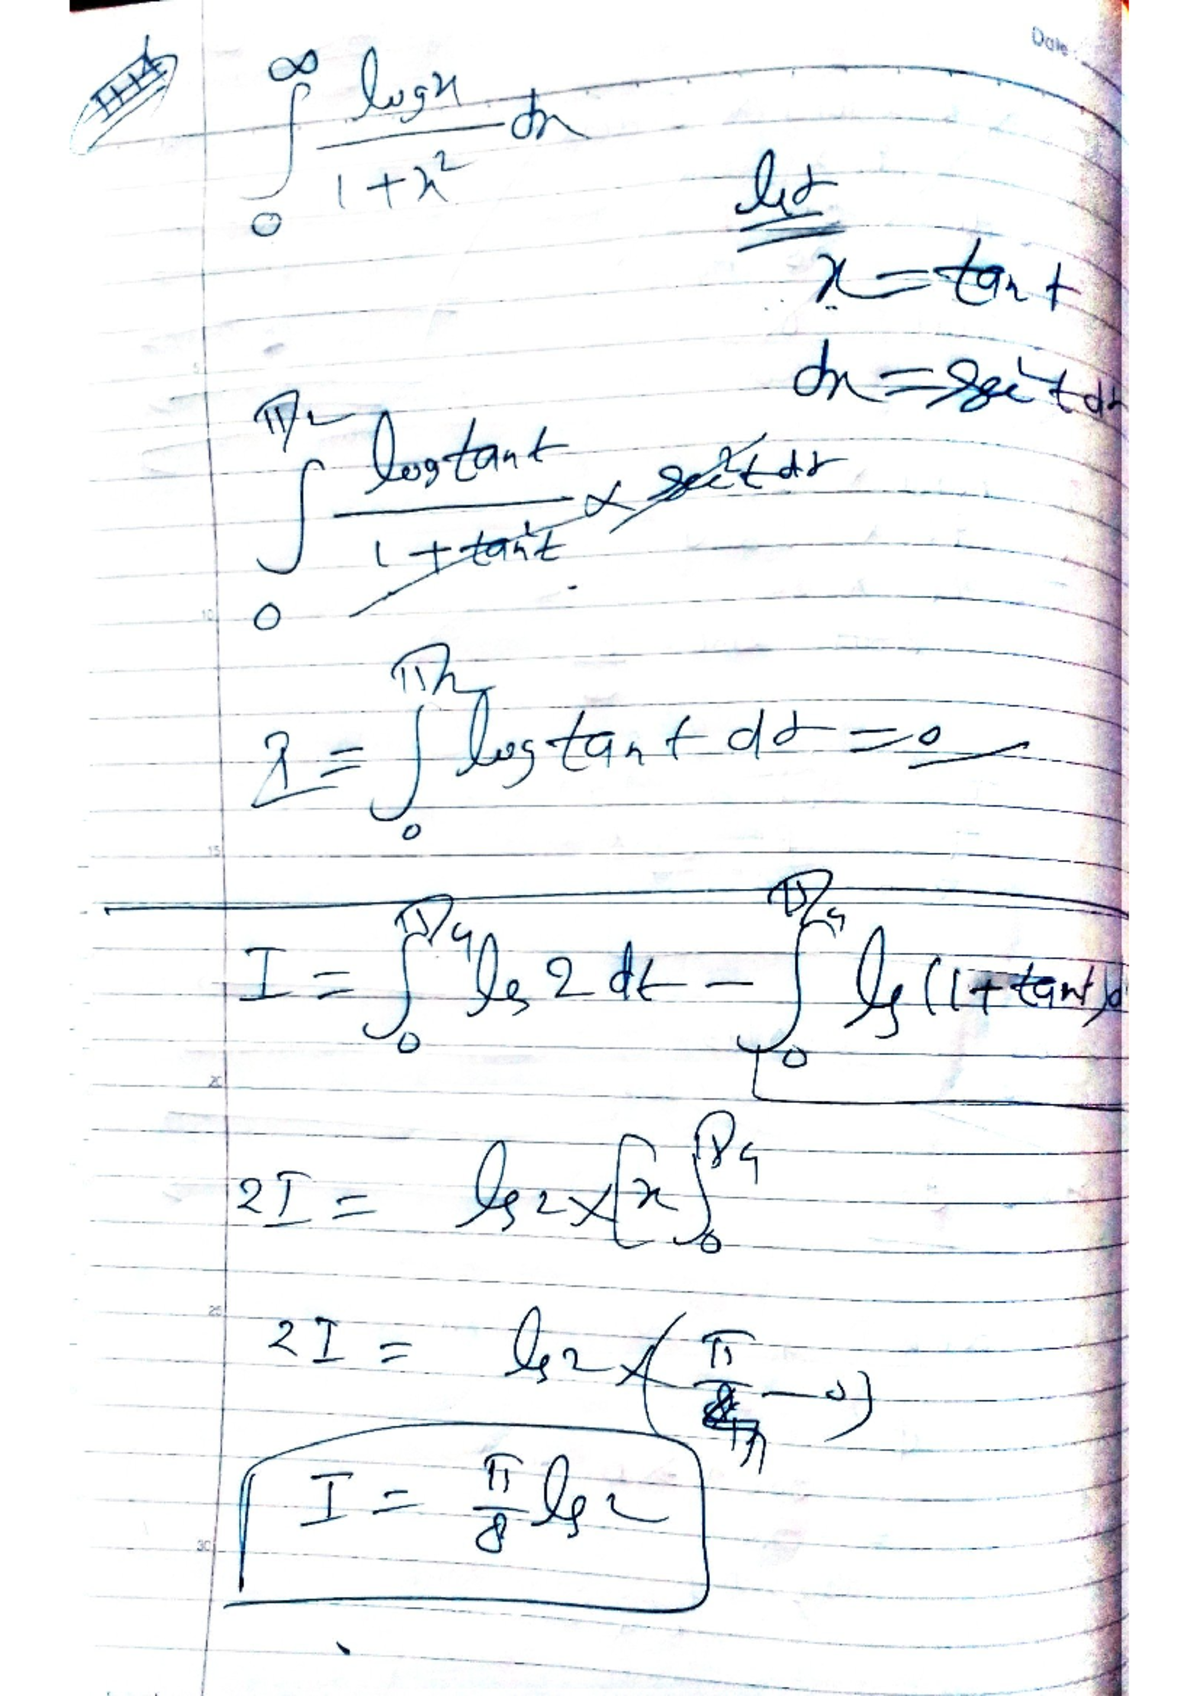 Date
∞
∫ log x / 1 + x² dx
0
let
x = tan t
dx = sec² t dt
π/2
∫ log tan t / 1 + tan² t × sec² t dt
0
I = ∫₀^π/2 log tan t dt = 0
I = ∫₀^π/4 log 2 dt − ∫₀^π/4 log (1 + tan t) d
2I = log 2 × [x]₀^π/4
2I = log 2 × (π/4 − 0)
I = π/8 log 2
5
10
15
20
25
30